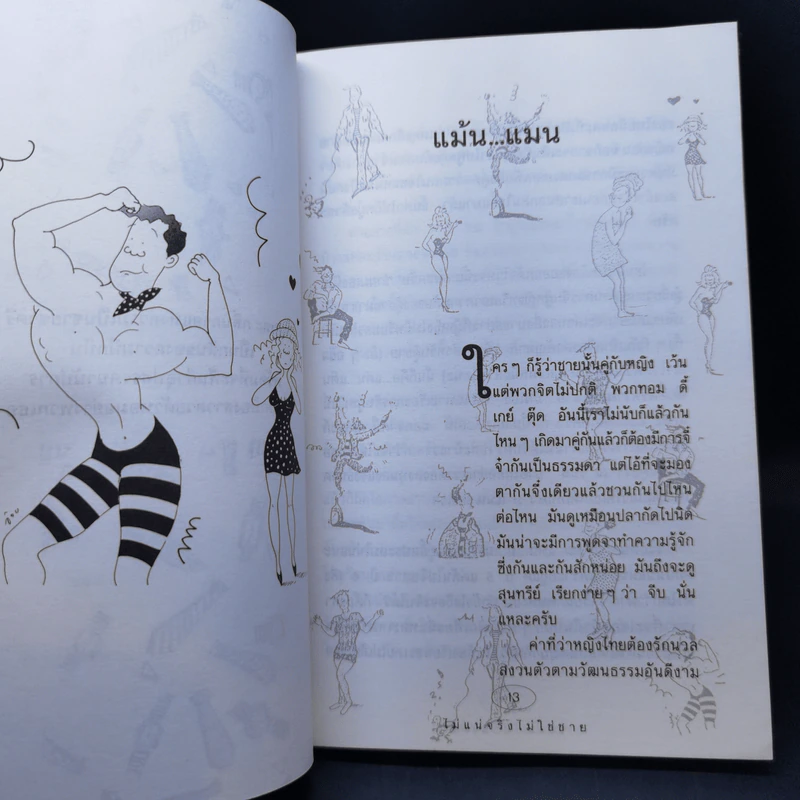 แม้น...แมน
ใครๆ ก็รู้ว่าชายนั้นคู่กับหญิง เว้น
แต่พวกจิตไม่ปกติ พวกทอม ดี้
เกย์ ตุ๊ด อันนี้เราไม่นับก็แล้วกัน
ไหนๆ เกิดมาคู่กันแล้วก็ต้องมีการจี๋
จ๋ากันเป็นธรรมดา แต่ไอ้ที่จะมอง
ตากันจึ๋งเดียวแล้วชวนกันไปไหน
ต่อไหน มันดูเหมือนปลากัดไปนิด
มันน่าจะมีการพูดจาทำความรู้จัก
ซึ่งกันและกันสักหน่อย มันถึงจะดู
สุนทรีย์ เรียกง่ายๆ ว่า จีบ นั่น
แหละครับ
ค่าที่ว่าหญิงไทยต้องรักนวล
สงวนตัวตามวัฒนธรรมอันดีงาม
13
ไม่แน่จริงไม่ใช่ชาย